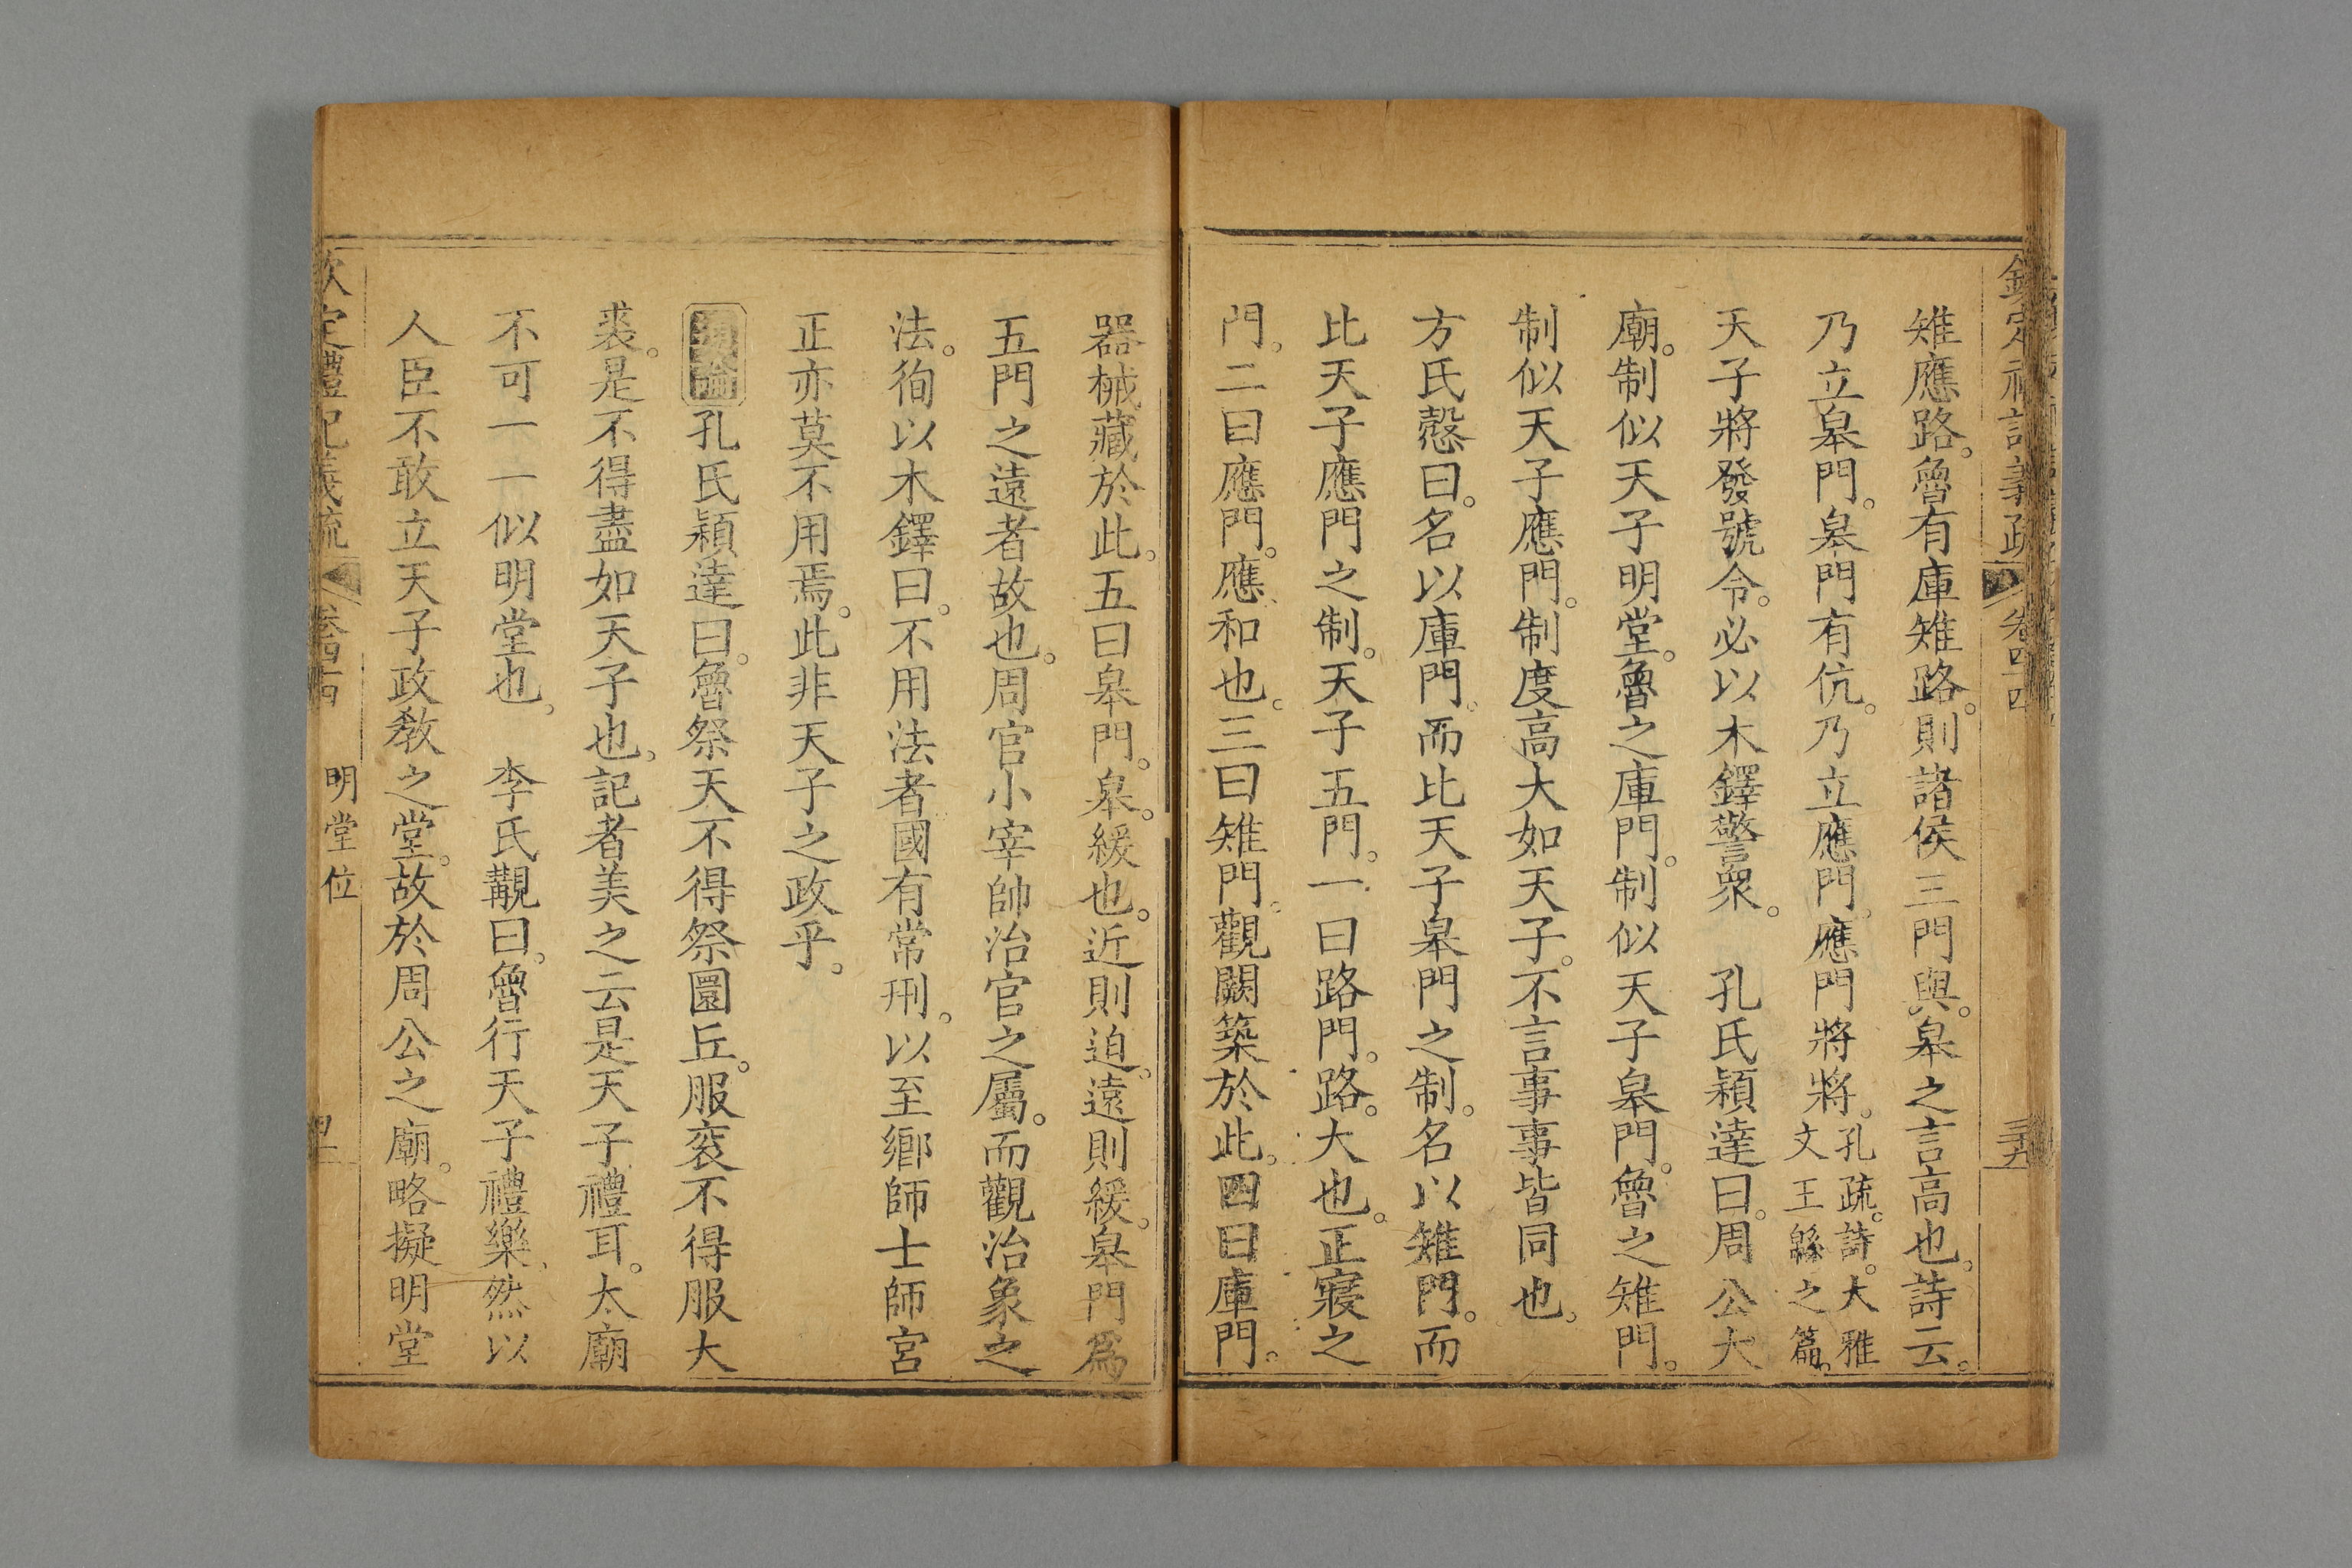 欽定禮記義疏 卷四十四 三十九
雉應路。魯有庫雉路。則諸侯三門與。皋之言高也。詩云。
乃立皋門。皋門有伉。乃立應門。應門將將。孔疏。詩。大雅文王緜之篇。
天子將發號令。必以木鐸警眾。　孔氏穎達曰。周公大
廟。制似天子明堂。魯之庫門。制似天子皋門。魯之雉門。
制似天子應門。制度高大如天子。不言事事皆同也。
方氏慤曰。名以庫門。而比天子皋門之制。名以雉門。而
比天子應門之制。天子五門。一曰路門。路。大也。正寢之
門。二曰應門。應。和也。三曰雉門。觀闕築於此。四曰庫門。
器械藏於此。五曰皋門。皋。緩也。近則迫。遠則緩。皋門爲
五門之遠者故也。周官小宰帥治官之屬。而觀治象之
法。徇以木鐸曰。不用法者國有常刑。以至鄉師士師宮
正亦莫不用焉。此非天子之政乎。
通論 孔氏穎達曰。魯祭天不得祭圜丘。服袞不得服大
裘。是不得盡如天子也。記者美之云是天子禮耳。太廟
不可一一似明堂也。　李氏覯曰。魯行天子禮樂。然以
人臣不敢立天子政教之堂。故於周公之廟。略擬明堂
欽定禮記義疏 卷四十四 明堂位